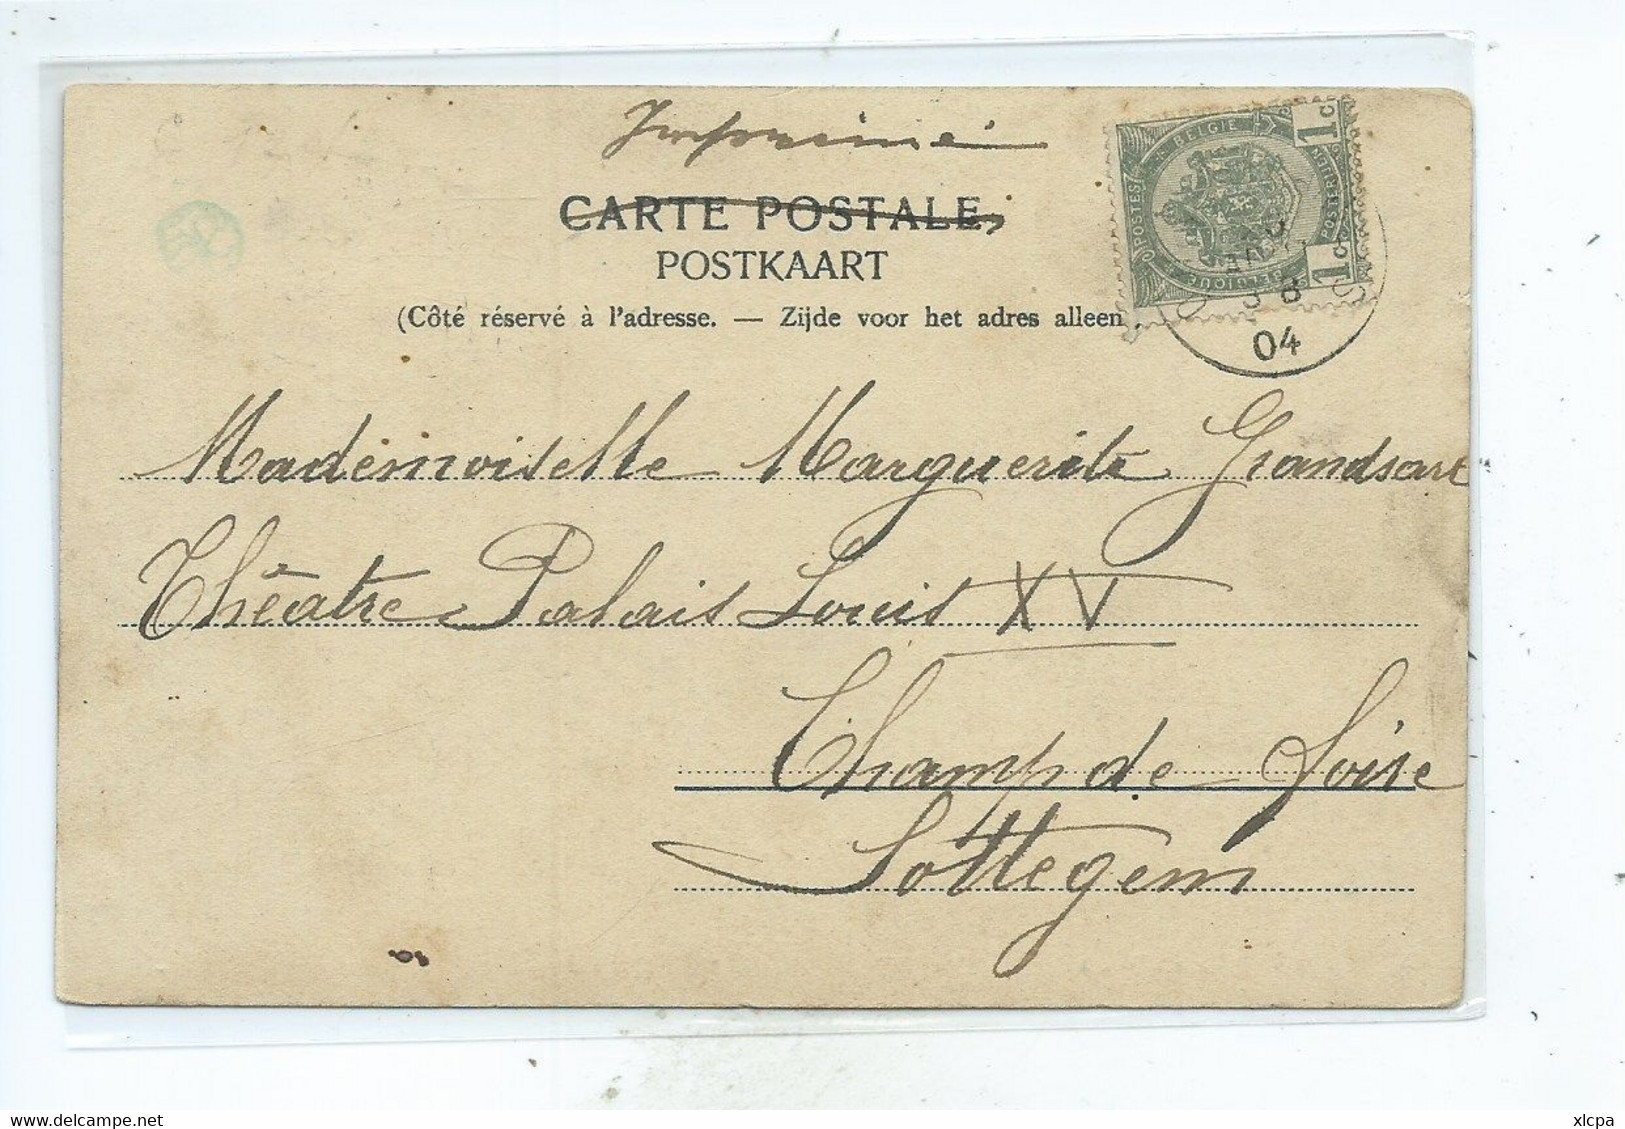 Imprimé
CARTE POSTALE
POSTKAART
(Côté réservé à l'adresse. — Zijde voor het adres alleen
POSTES BELGIQUE
POSTERIJEN BELGIE
1c
1c
8
04
Mademoiselle Marguerite Grandsart
Théâtre Palais Louis XV
Champ de foire
Sottegem
xlcpa
delcampe.net